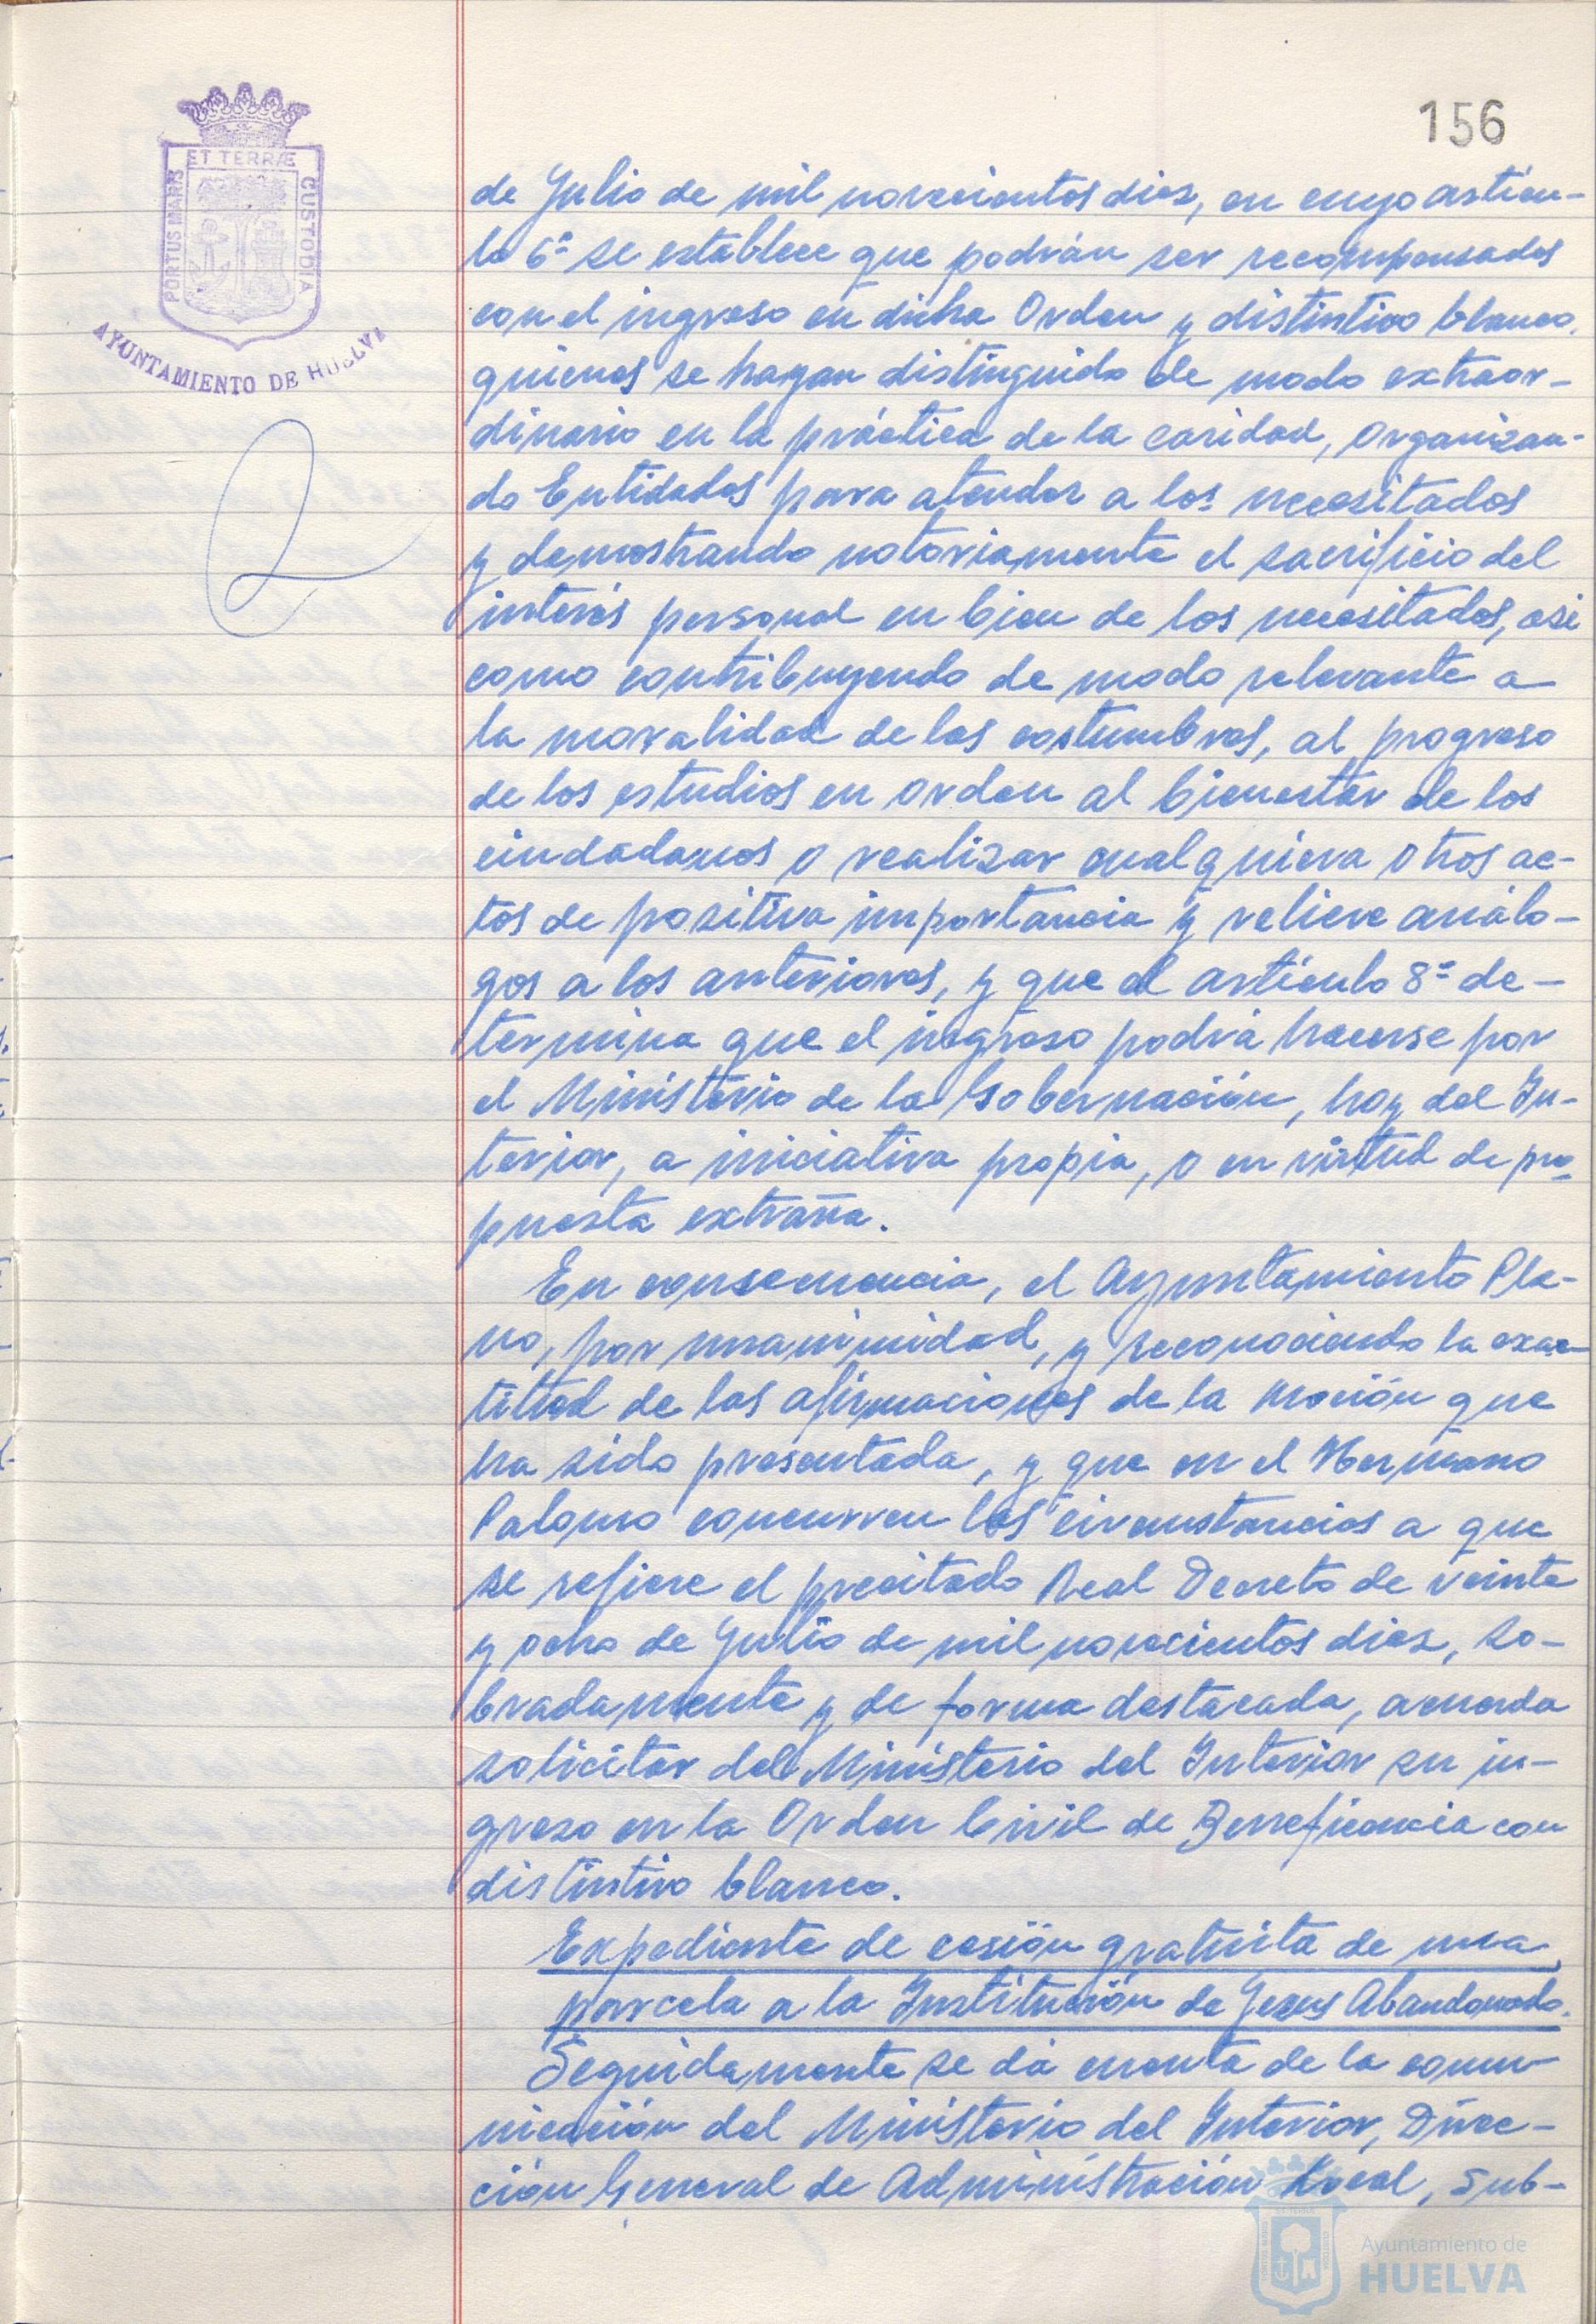 156
ET TERRÆ
PORTUS MARIS
CUSTODIA
AYUNTAMIENTO DE HUELVA
de Julio de mil novecientos diez, en cuyo artícu-
lo 6º se establece que podrán ser recompensados
con el ingreso en dicha Orden y distintivo blanco,
quienes se hayan distinguido de modo extraor-
dinario en la práctica de la caridad, organizan-
do Entidades para atender a los necesitados
y demostrando notoriamente el sacrificio del
interés personal en bien de los necesitados, asi
como contribuyendo de modo relevante a
la moralidad de las costumbres, al progreso
de los estudios en orden al bienestar de los
ciudadanos o realizar cualquiera otros ac-
tos de positiva importancia y relieve análo-
gos a los anteriores, y que el artículo 8º de-
termina que el ingreso podrá hacerse por
el Ministerio de la Gobernación, hoy del In-
terior, a iniciativa propia, o en virtud de pro-
puesta extraña.
En consecuencia, el Ayuntamiento Ple-
no, por unanimidad, y reconociendo la exac-
titud de las afirmaciones de la Moción que
ha sido presentada, y que en el Hermano
Palomo concurren las circunstancias a que
se refiere el precitado Real Decreto de veinte
y ocho de Julio de mil novecientos diez, so-
bradamente y de forma destacada, acuerda
solicitar del Ministerio del Interior su in-
greso en la Orden Civil de Beneficencia con
distintivo blanco.
Expediente de cesión gratuita de una
parcela a la Institución de Jesus Abandonado.
Seguidamente se dá cuenta de la comu-
nicación del Ministerio del Interior, Direc-
ción General de Administración Local, Sub-
Ayuntamiento de
HUELVA